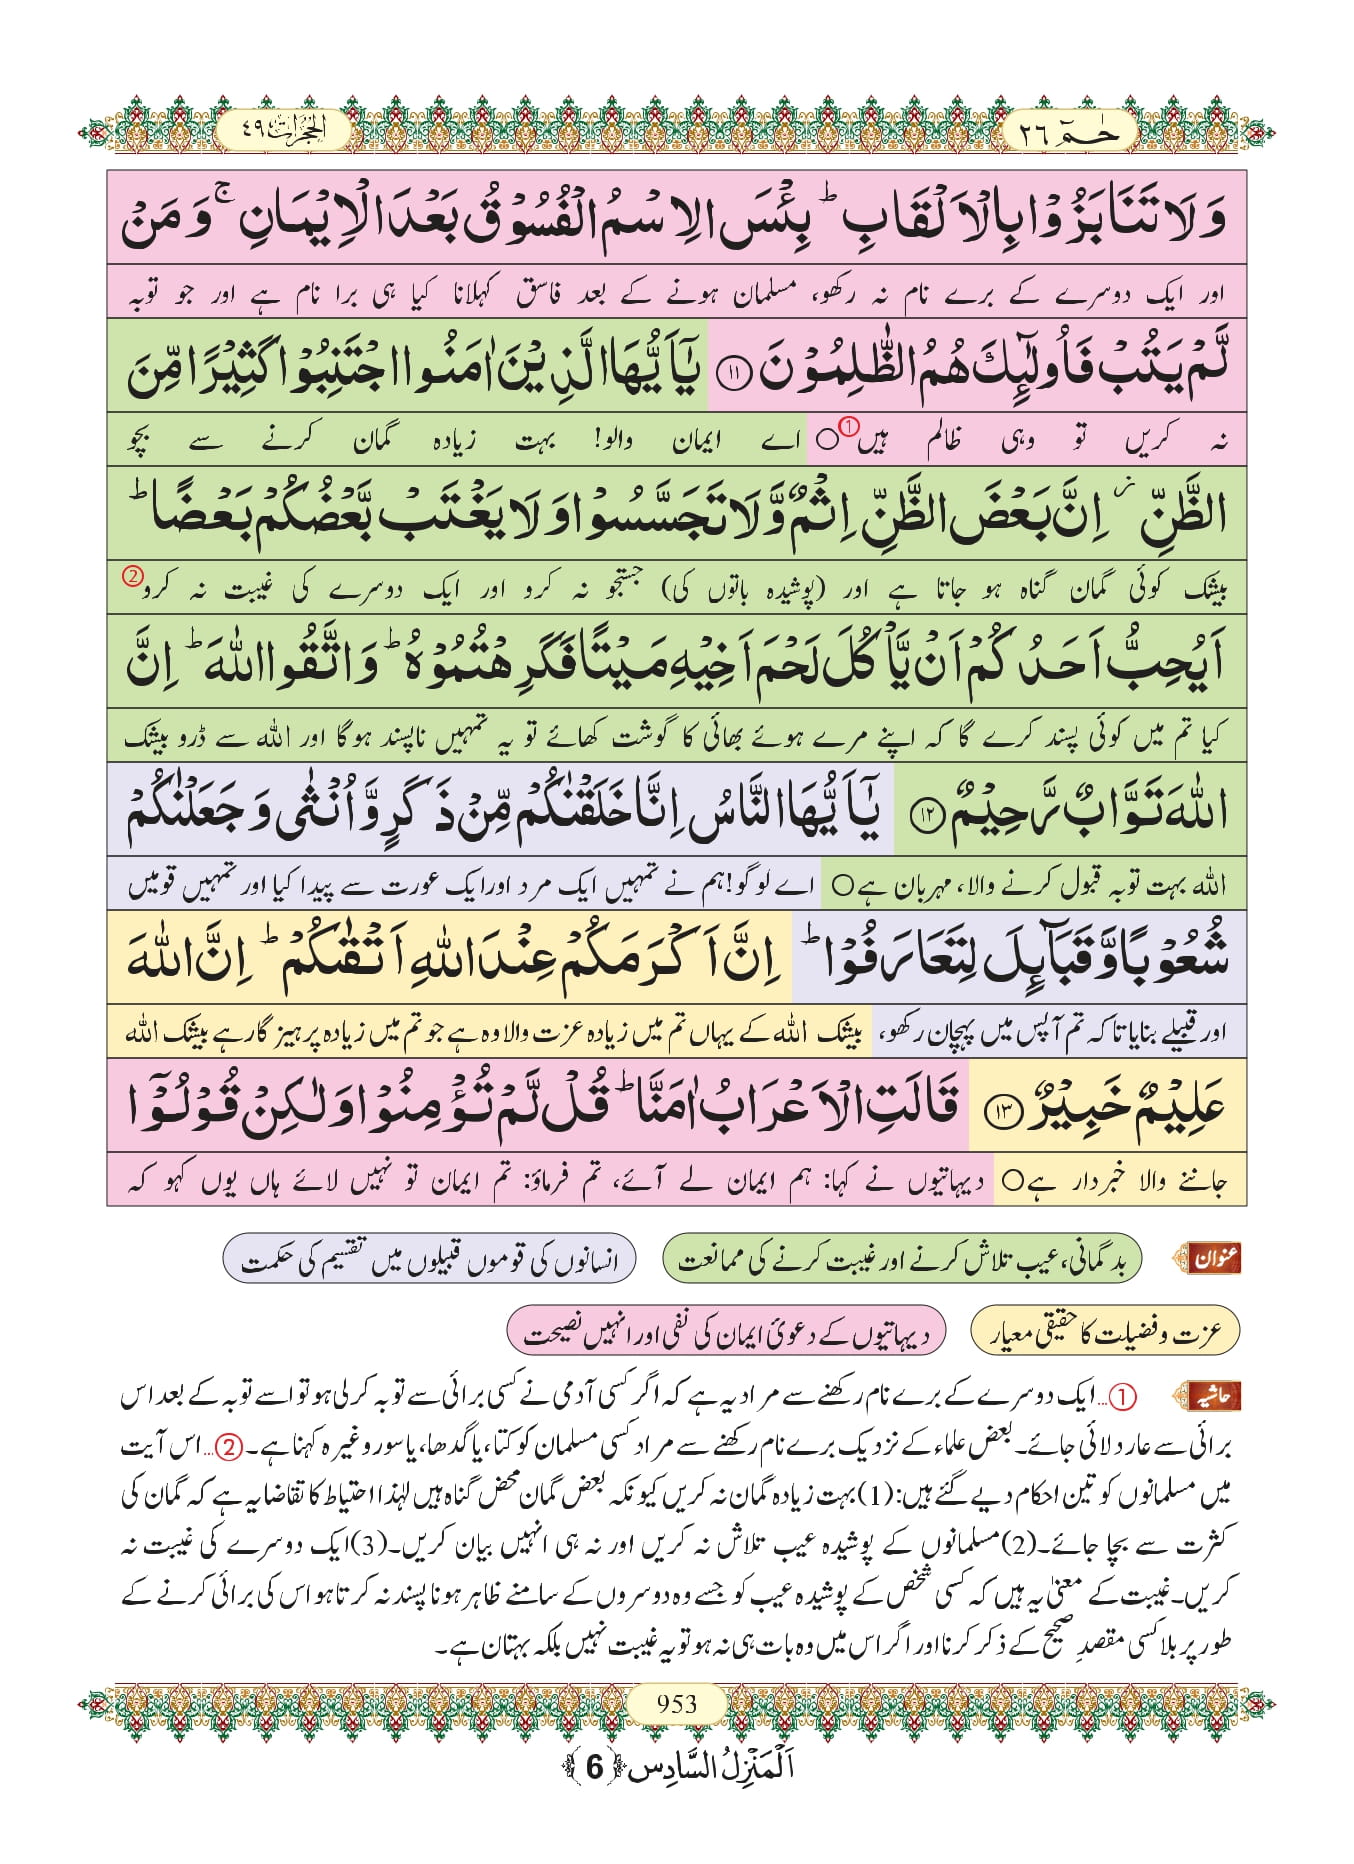 حٰمٓ ٢٦
الحُجُرَات ٤٩
وَ لَا تَنَابَزُوْا بِالْاَلْقَابِ ؕ بِئْسَ الِاسْمُ الْفُسُوْقُ بَعْدَ الْاِیْمَانِ ۚ وَ مَنْ
اور ایک دوسرے کے برے نام نہ رکھو، مسلمان ہونے کے بعد فاسق کہلانا کیا ہی برا نام ہے اور جو توبہ
لَّمْ یَتُبْ فَاُولٰٓىِٕكَ هُمُ الظّٰلِمُوْنَ ﴿۱۱﴾ یٰۤاَیُّهَا الَّذِیْنَ اٰمَنُوا اجْتَنِبُوْا كَثِیْرًا مِّنَ
نہ کریں تو وہی ظالم ہیں①○ اے ایمان والو! بہت زیادہ گمان کرنے سے بچو
الظَّنِّ ؗ اِنَّ بَعْضَ الظَّنِّ اِثْمٌ وَّ لَا تَجَسَّسُوْا وَ لَا یَغْتَبْ بَّعْضُكُمْ بَعْضًا ؕ
بیشک کوئی گمان گناہ ہو جاتا ہے اور (پوشیدہ باتوں کی) جستجو نہ کرو اور ایک دوسرے کی غیبت نہ کرو②
اَیُحِبُّ اَحَدُكُمْ اَنْ یَّاْكُلَ لَحْمَ اَخِیْهِ مَیْتًا فَكَرِهْتُمُوْهُ ؕ وَ اتَّقُوا اللّٰهَ ؕ اِنَّ
کیا تم میں کوئی پسند کرے گا کہ اپنے مرے ہوئے بھائی کا گوشت کھائے تو یہ تمہیں ناپسند ہوگا اور اللہ سے ڈرو بیشک
اللّٰهَ تَوَّابٌ رَّحِیْمٌ ﴿۱۲﴾ یٰۤاَیُّهَا النَّاسُ اِنَّا خَلَقْنٰكُمْ مِّنْ ذَكَرٍ وَّ اُنْثٰى وَ جَعَلْنٰكُمْ
اللہ بہت توبہ قبول کرنے والا، مہربان ہے○ اے لوگو! ہم نے تمہیں ایک مرد اور ایک عورت سے پیدا کیا اور تمہیں قومیں
شُعُوْبًا وَّ قَبَآىِٕلَ لِتَعَارَفُوْا ؕ اِنَّ اَكْرَمَكُمْ عِنْدَ اللّٰهِ اَتْقٰىكُمْ ؕ اِنَّ اللّٰهَ
اور قبیلے بنایا تاکہ تم آپس میں پہچان رکھو، بیشک اللہ کے یہاں تم میں زیادہ عزت والا وہ ہے جو تم میں زیادہ پرہیزگار ہے بیشک اللہ
عَلِیْمٌ خَبِیْرٌ ﴿۱۳﴾ قَالَتِ الْاَعْرَابُ اٰمَنَّا ؕ قُلْ لَّمْ تُؤْمِنُوْا وَ لٰكِنْ قُوْلُوْۤا
جاننے والا خبردار ہے○ دیہاتیوں نے کہا: ہم ایمان لے آئے، تم فرماؤ: تم ایمان تو نہیں لائے ہاں یوں کہو کہ
عنوان بدگمانی، عیب تلاش کرنے اور غیبت کرنے کی ممانعت انسانوں کی قوموں قبیلوں میں تقسیم کی حکمت
عزت و فضیلت کا حقیقی معیار دیہاتیوں کے دعویٔ ایمان کی نفی اور انہیں نصیحت
حاشیہ ①...ایک دوسرے کے برے نام رکھنے سے مراد یہ ہے کہ اگر کسی آدمی نے کسی برائی سے توبہ کرلی ہو تو اسے توبہ کے بعد اس
برائی سے عار دلائی جائے۔ بعض علماء کے نزدیک برے نام رکھنے سے مراد کسی مسلمان کو کتا، یا گدھا، یا سور وغیرہ کہنا ہے۔ ②...اس آیت
میں مسلمانوں کو تین احکام دیے گئے ہیں: (1) بہت زیادہ گمان نہ کریں کیونکہ بعض گمان محض گناہ ہیں لہٰذا احتیاط کا تقاضا یہ ہے کہ گمان کی
کثرت سے بچا جائے۔ (2) مسلمانوں کے پوشیدہ عیب تلاش نہ کریں اور نہ ہی انہیں بیان کریں۔ (3) ایک دوسرے کی غیبت نہ
کریں۔ غیبت کے معنیٰ یہ ہیں کہ کسی شخص کے پوشیدہ عیب کو جسے وہ دوسروں کے سامنے ظاہر ہونا پسند نہ کرتا ہو اس کی برائی کرنے کے
طور پر بلا کسی مقصدِ صحیح کے ذکر کرنا اور اگر اس میں وہ بات ہی نہ ہو تو یہ غیبت نہیں بلکہ بہتان ہے۔
953
اَلْمَنْزِلُ السَّادِس ﴿6﴾